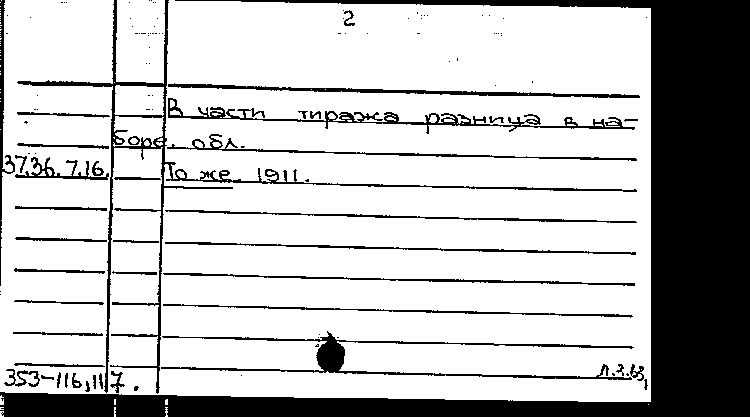 2
В части тиража разница в на-
боре. обл.
37.36.7.16. То же. 1911.
353-116,117.